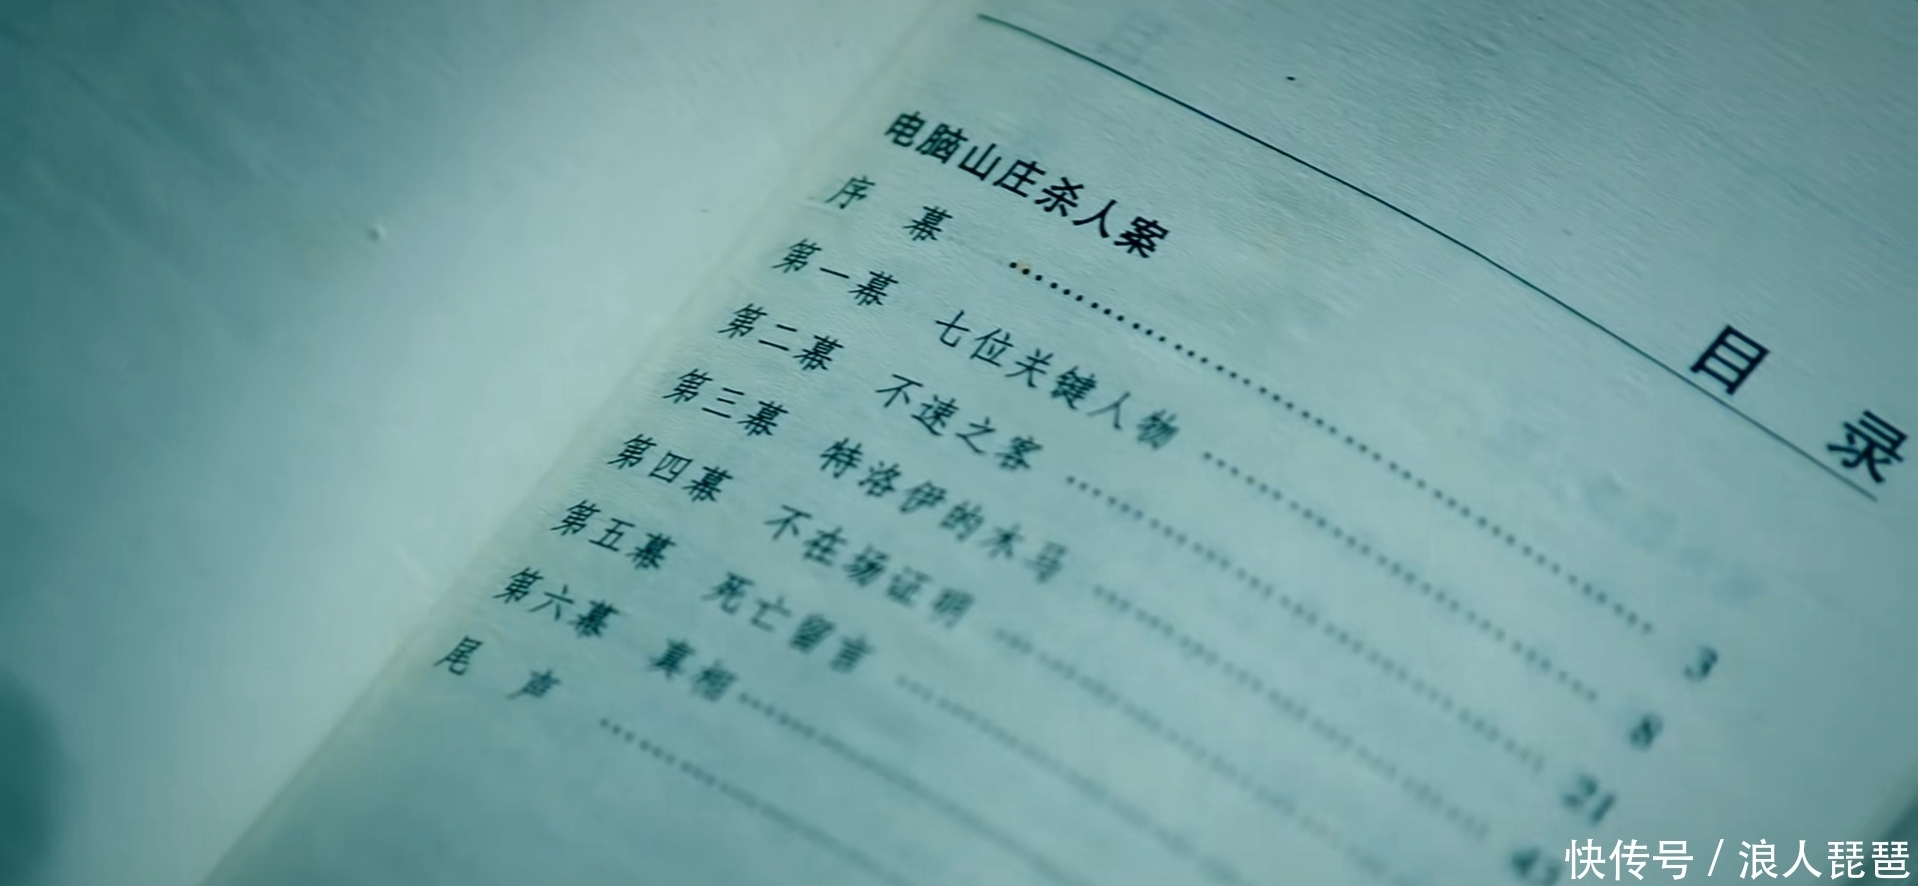 目 录
电脑山庄杀人案
序 幕 …… 3
第一幕 七位关键人物 …… 8
第二幕 不速之客 …… 21
第三幕 特洛伊的木马 ……
第四幕 不在场证明 ……
第五幕 死亡留言 ……
第六幕 真相 ……
尾 声 ……
快传号 / 浪人琵琶